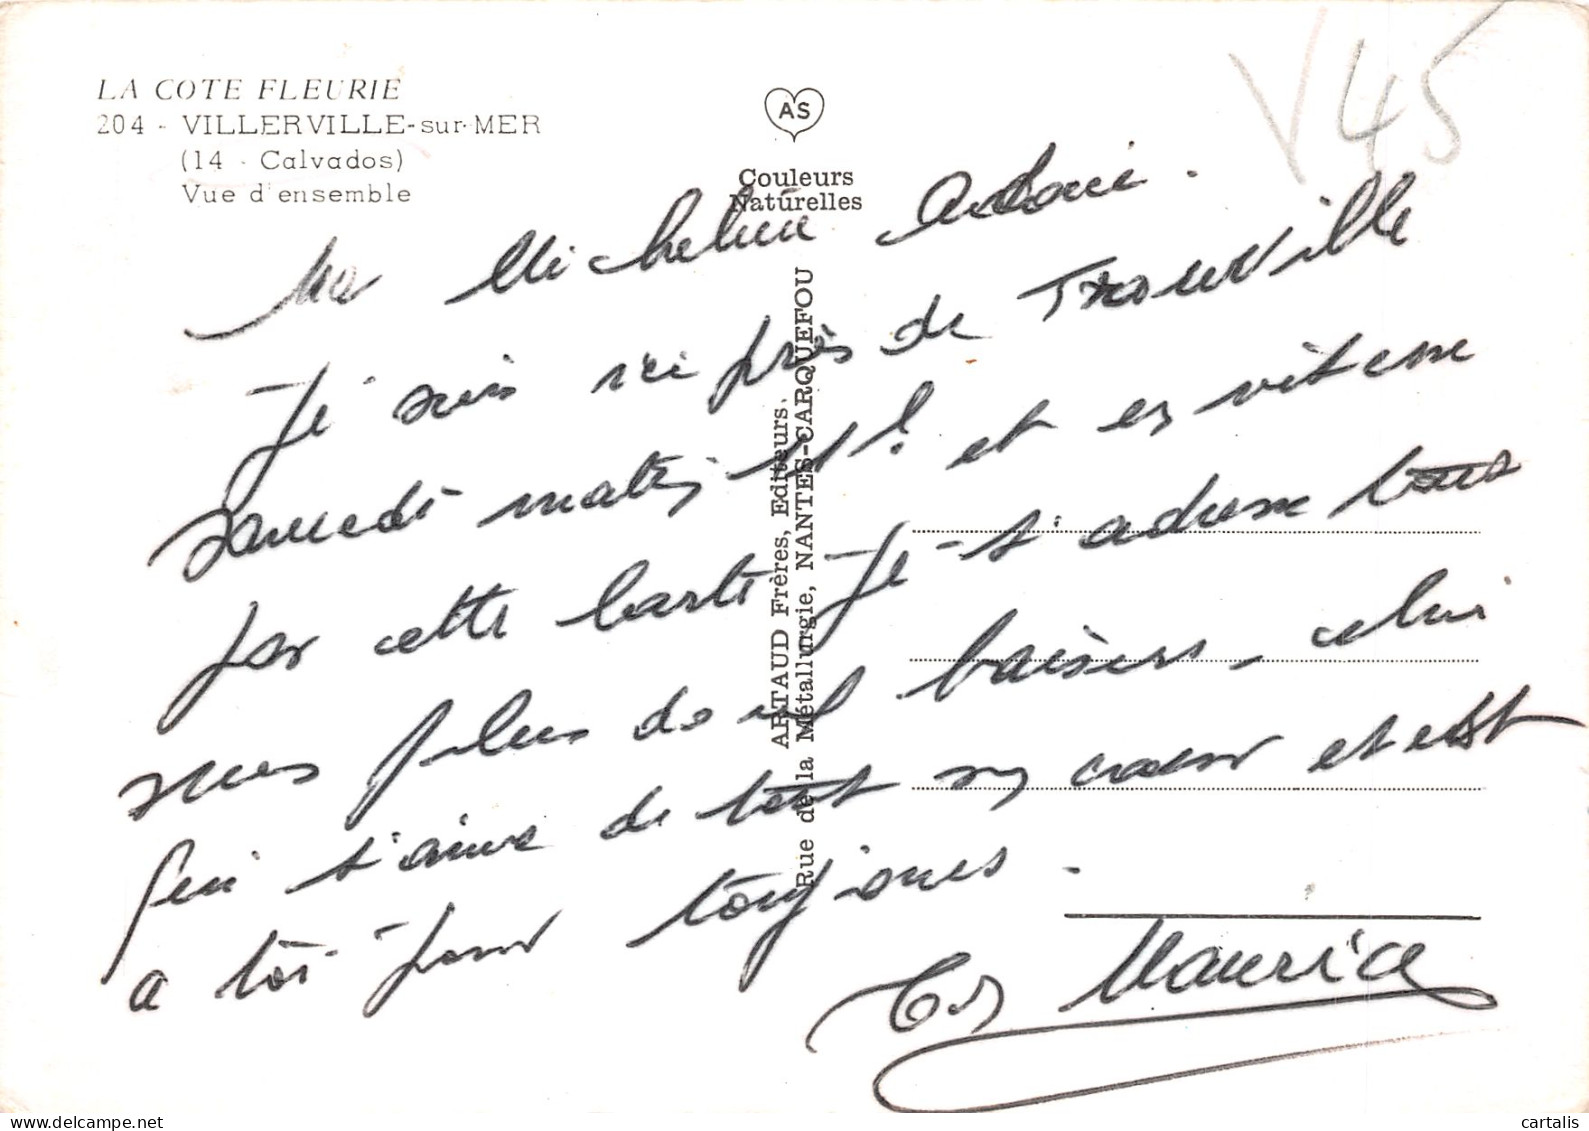 LA COTE FLEURIE
204 - VILLERVILLE-sur-MER
(14 - Calvados)
Vue d'ensemble
AS
Couleurs
Naturelles
V45
ARTAUD Frères, Editeurs.
Rue de la Métallurgie, NANTES-CARQUEFOU
Ma Micheline
Je suis ici près de Trouville
samedi matin et en vitesse
par cette carte je t'adresse tous
mes plus doux baisers - celui
qui t'aime de tout son cœur et est
a toi pour toujours -
Ton Maurice
delcampe.net
cartalis